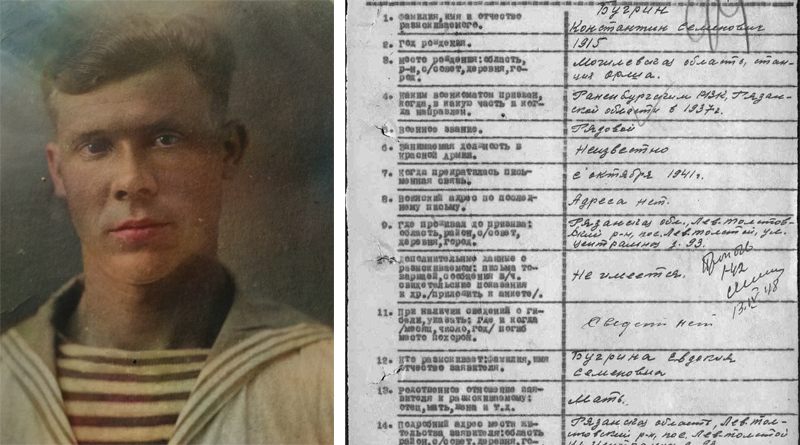 1. Фамилия, имя и отчество разыскиваемого.
Бугрин
Константин Семенович
2. Год рождения.
1915
3. Место рождения: область, р-н, с/совет, деревня, город.
Могилевская область, стан-
ция Орша.
4. Каким военкоматом призван, когда, в какую часть и когда направлен.
Раненбургским РВК, Рязан-
ской области в 1937г.
5. Военное звание.
Рядовой
6. Занимаемая должность в Красной Армии.
Неизвестно
7. Когда прекратилась письменная связь.
с октября 1941г.
8. Воинский адрес по последнему письму.
Адреса нет.
9. Где проживал до призыва: область, район, с/совет, деревня, город.
Рязанская обл. Лев-Толстов-
ский р-н, пос. Лев-Толстой, ул.
Центральная д. 93.
10. Дополнительные данные о разыскиваемом: письма товарищей, сообщения в/ч. свидетельские показания и др. /приложить к анкете/.
Не имеется.
11. При наличии сведений о гибели, указать: где и когда /месяц, число, год/ погиб место похорон.
Сведений нет
12. Кто разыскивает: фамилия, имя отчество заявителя.
Бугрина Евдокия
Семеновна
13. Родственное отношение заявителя к разыскиваемому: отец, мать, жена и т.д.
Мать.
14. Подробный адрес места жительства заявителя: область район, с/совет, деревня, го-
Рязанская область, Лев-Тол-
стовский р-н, пос. Лев-Толстой